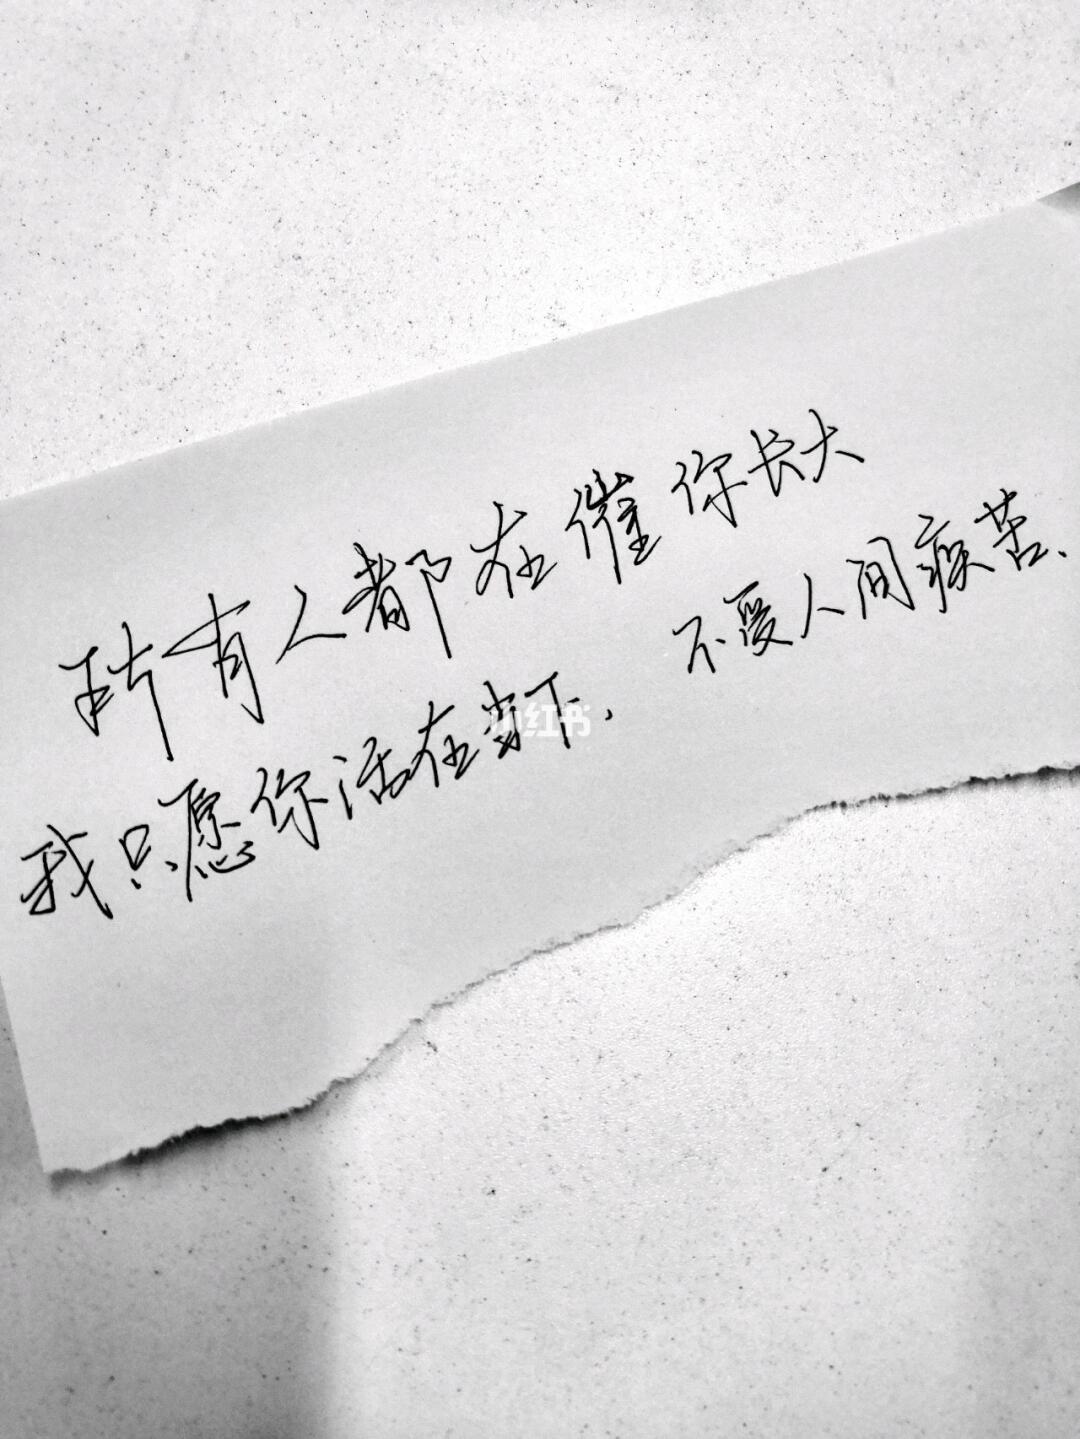 所有人都在催你长大
我只愿你活在当下, 不受人间疾苦、
小红书